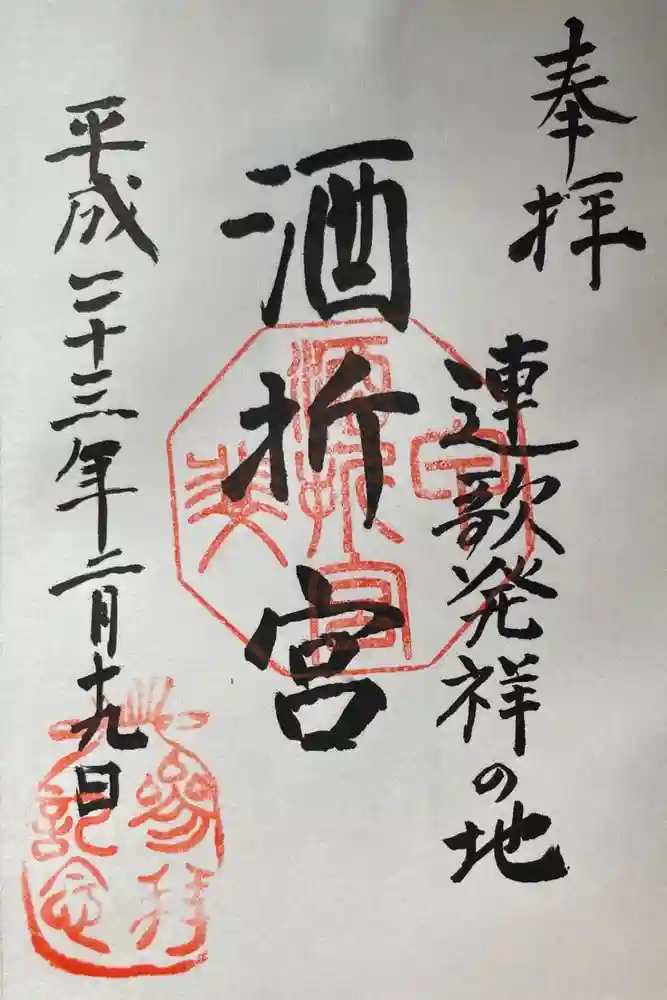 奉拝
連歌発祥の地
酒折宮
平成二十三年二月十九日
酒折宮
參拝
記念